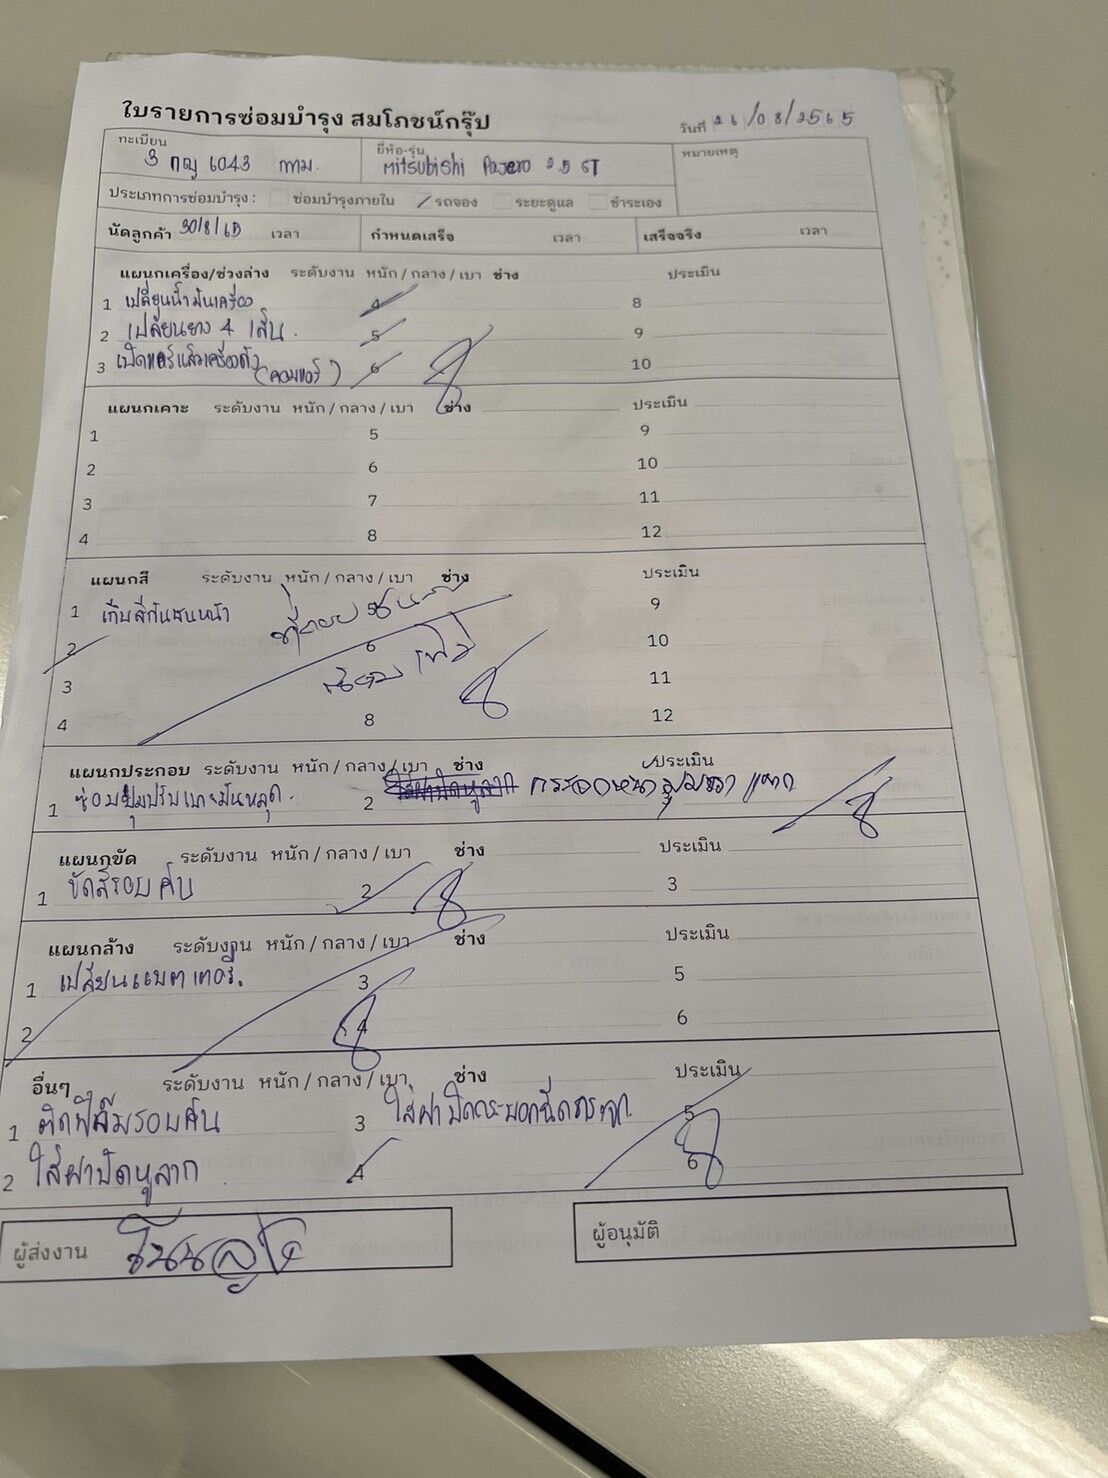 ใบรายการซ่อมบำรุง สมโภชน์กรุ๊ป
วันที่ 26/08/2565
ทะเบียน 3 กญ 6043 กทม.
ยี่ห้อ-รุ่น Mitsubishi Pajero 2.5 GT
หมายเหตุ
ประเภทการซ่อมบำรุง : ซ่อมบำรุงภายใน / รถจอง ระยะดูแล ชำระเอง
นัดลูกค้า 30/8/65 เวลา กำหนดเสร็จ เวลา เสร็จจริง เวลา
แผนกเครื่อง/ช่วงล่าง ระดับงาน หนัก / กลาง / เบา ช่าง ประเมิน
1 เปลี่ยนน้ำมันเครื่อง 4 8
2 เปลี่ยนยาง 4 เส้น. 5 9
3 เปิดแอร์แล้วเครื่องดับ (คอมแอร์) 6 10
แผนกเคาะ ระดับงาน หนัก / กลาง / เบา ช่าง ประเมิน
1 5 9
2 6 10
3 7 11
4 8 12
แผนกสี ระดับงาน หนัก / กลาง / เบา ช่าง ประเมิน
1 เก็บสีกันชนหน้า 9
2 6 10
3 11
4 8 12
แผนกประกอบ ระดับงาน หนัก / กลาง / เบา ช่าง ประเมิน
1 ซ่อมปุ่มปรับเบาะมันหลุด. 2 ใส่ฝาปิดหูลาก กระจกหน้ามุมขวา แตก
แผนกขัด ระดับงาน หนัก / กลาง / เบา ช่าง ประเมิน
1 ขัดสีรอบคัน 2 3
แผนกล้าง ระดับงาน หนัก / กลาง / เบา ช่าง ประเมิน
1 เปลี่ยนแบตเตอรี่. 3 5
2 4 6
อื่นๆ ระดับงาน หนัก / กลาง / เบา ช่าง ประเมิน
1 ติดฟิล์มรอบคัน 3 ใส่ฝาปิดกระบอกฉีดกระจก. 5
2 ใส่ฝาปิดหูลาก 4 6
ผู้ส่งงาน
ผู้อนุมัติ